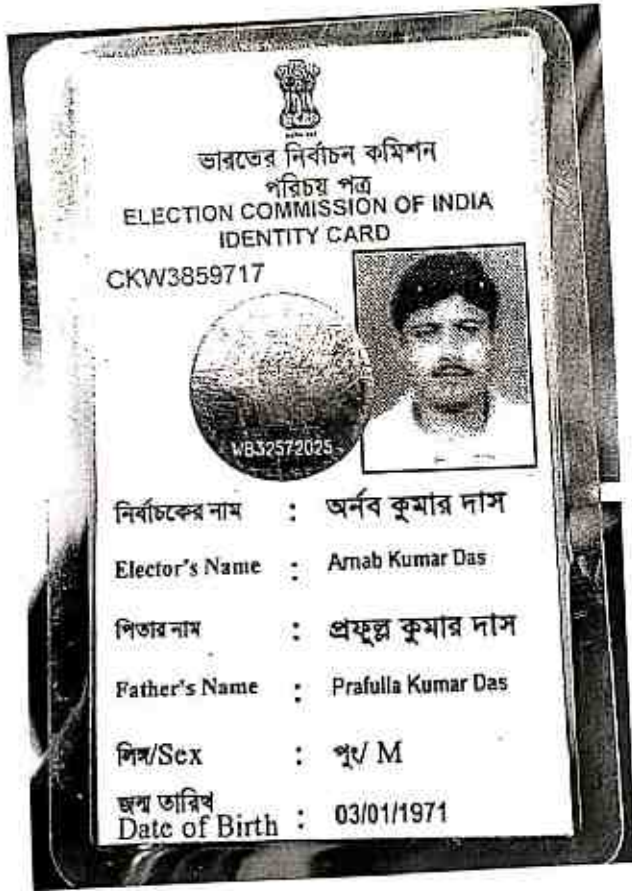 ভারতের নির্বাচন কমিশন
পরিচয় পত্র
ELECTION COMMISSION OF INDIA
IDENTITY CARD
CKW3859717
WB32572025
নির্বাচকের নাম : অর্নব কুমার দাস
Elector's Name : Arnab Kumar Das
পিতার নাম : প্রফুল্ল কুমার দাস
Father's Name : Prafulla Kumar Das
লিঙ্গ/Sex : পুং/ M
জন্ম তারিখ
Date of Birth : 03/01/1971